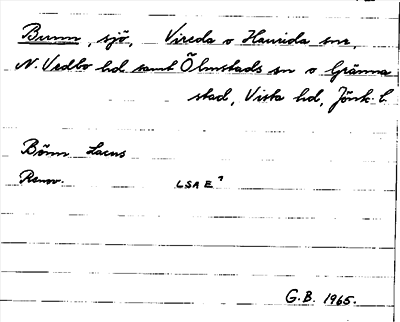 Bunn, sjö, Vireda o Haurida snr,
N. Vedbo hd samt Ölmstads sn o Gränna
stad, Vista hd, Jönk. l.
Bönn Lacus
Renov. LSA E⁷
G.B. 1965.